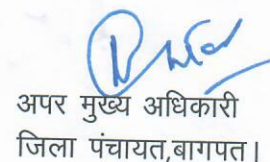 अपर मुख्य अधिकारी
जिला पंचायत,बागपत।